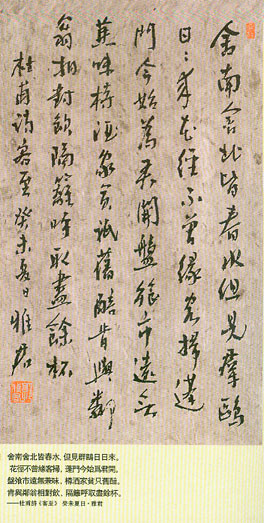 舍南舍北皆春水但見群鷗
日〻來花徑不曾緣客掃蓬
門今始為君開盤飧市遠無
兼味樽酒家貧祇舊醅肯與鄰
翁相對飲隔籬呼取盡餘杯
杜甫詩客至 癸未夏日 雅君
舍南舍北皆春水,但見群鷗日日來。
花徑不曾緣客掃,蓬門今始為君開。
盤飧市遠無兼味,樽酒家貧只舊醅。
肯與鄰翁相對飲,隔籬呼取盡餘杯。
——杜甫詩《客至》 癸未夏日·雅君